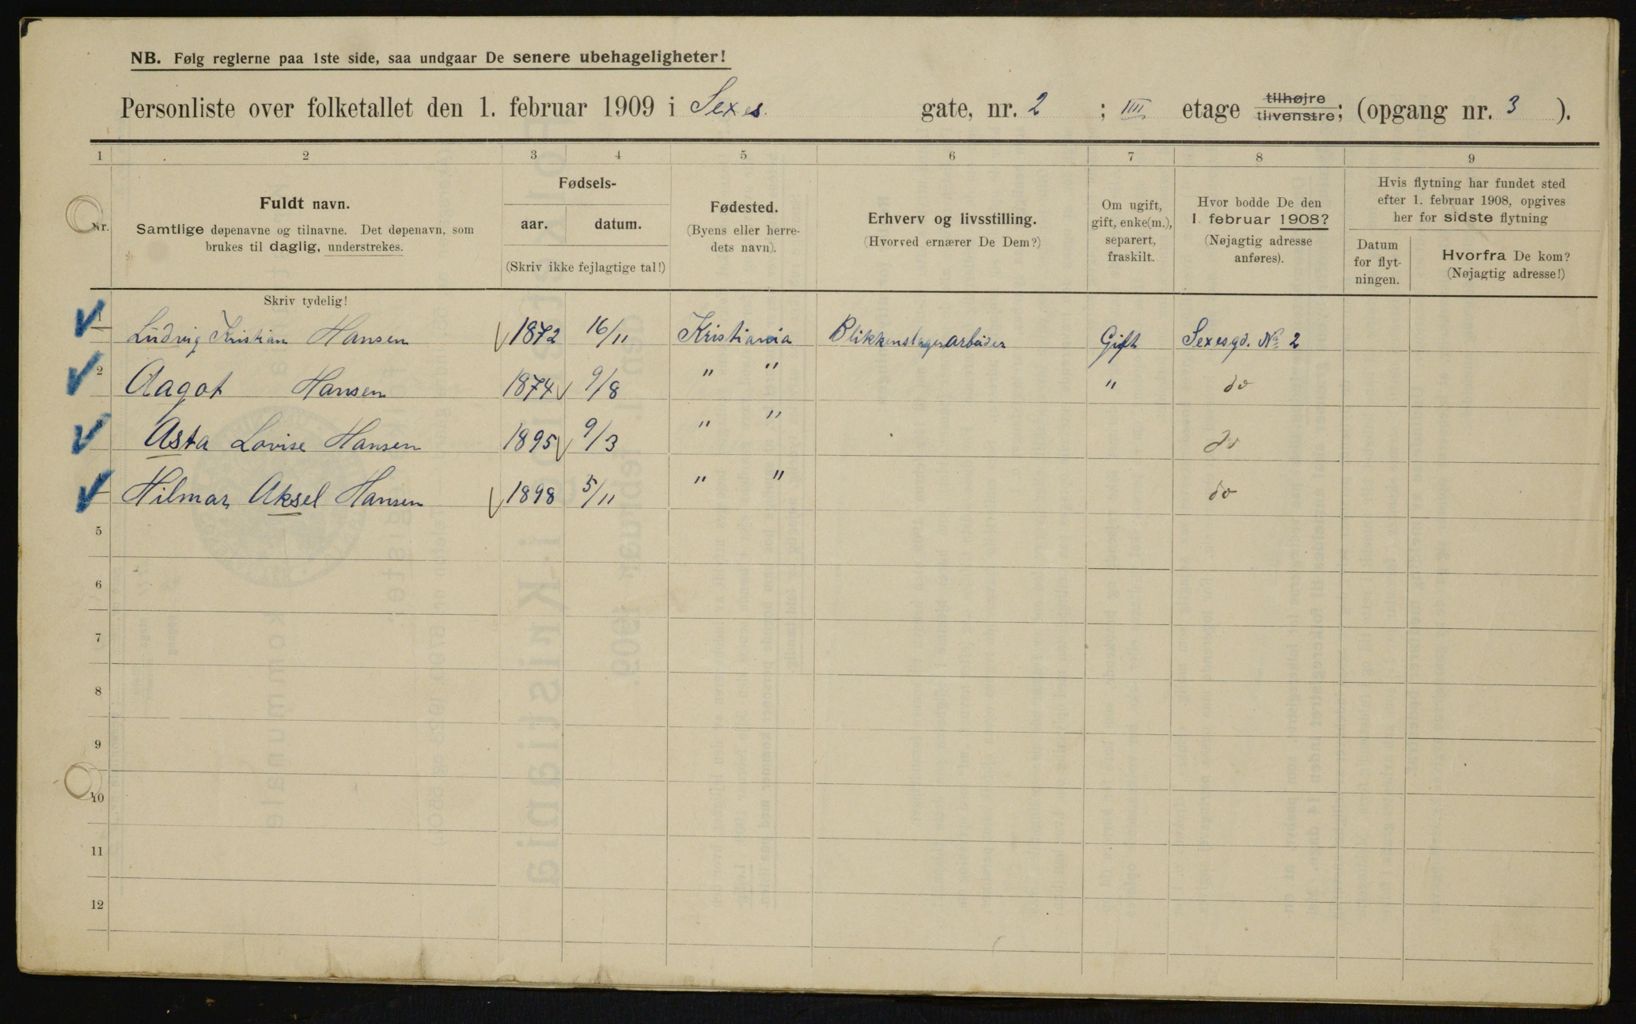 NB. Følg reglerne paa 1ste side, saa undgaar De senere ubehageligheter!
Personliste over folketallet den 1. februar 1909 i Sexes. gate, nr. 2 ; IIII etage tilhøjre tilvenstre; (opgang nr. 3 ).
1 2 3 4 5 6 7 8 9
Nr. Fuldt navn. Samtlige døpenavne og tilnavne. Det døpenavn, som brukes til daglig, understrekes.
Fødsels- aar. datum. (Skriv ikke fejlagtige tal!)
Fødested. (Byens eller herredets navn).
Erhverv og livsstilling. (Hvorved ernærer De Dem?)
Om ugift, gift, enke(m.), separert, fraskilt.
Hvor bodde De den 1. februar 1908? (Nøjagtig adresse anføres).
Hvis flytning har fundet sted efter 1. februar 1908, opgives her for sidste flytning
Datum for flytningen. Hvorfra De kom? (Nøjagtig adresse!)
Skriv tydelig!
1 Ludvig Kristian Hansen 1872 16/11 Kristiania Blikkenslagerarbeider Gift Sexesgd. No 2
2 Aagot Hansen 1874 9/8 " " " do
Asta Lovise Hansen 1895 9/3 " " do
Hilmar Aksel Hansen 1898 5/11 " " do
5
6
7
8
9
10
11
12